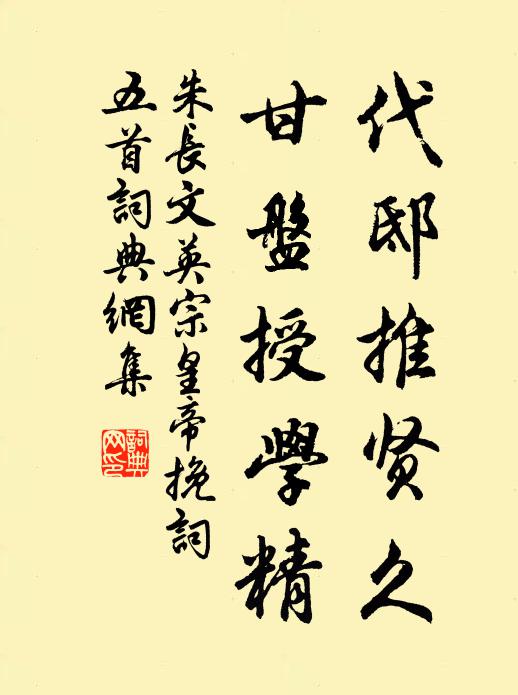 代邸推贤久
甘盤授學精
朱長文英宗皇帝挽詞
五首詞典網集
詞典
网印